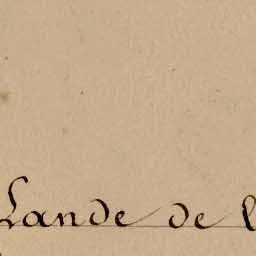 Lande de l